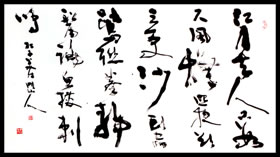 江月去人只數
尺風燈照夜欲
三更沙頭宿
鷺聯拳靜
船尾跳魚撥剌
鳴